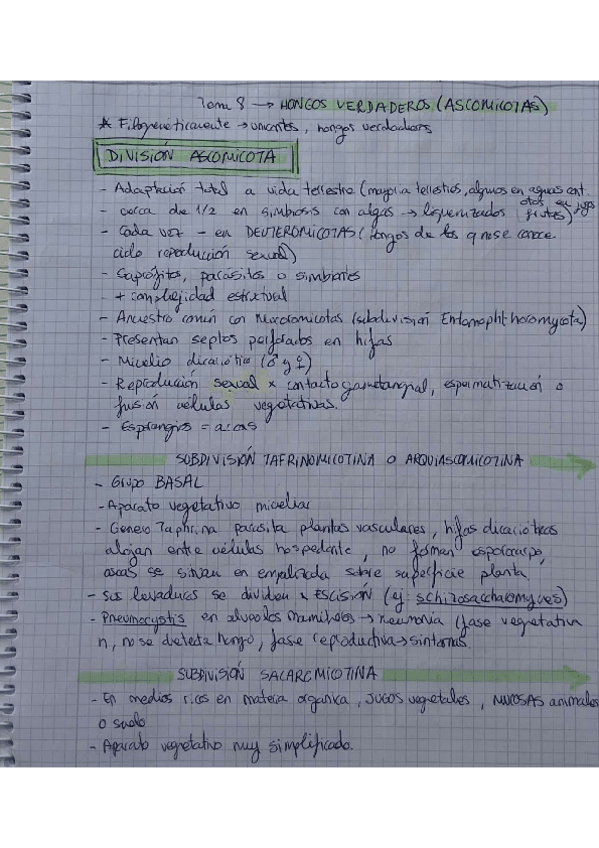 Tema 8 → HONGOS VERDADEROS (ASCOMICOTAS)
* Filogenéticamente → unicontes, hongos verdaderos
DIVISIÓN ASCOMICOTA
- Adaptación total a vida terrestre (mayoría terrestres, algunos en aguas cont.
- cerca de 1/2 en simbiosis con algas → liquenizados otos en jugos frutes)
- Cada vez - en DEUTEROMICOTAS (hongos de los q no se conoce
ciclo reproducción sexual)
- Saprófitos, parásitos o simbiontes
- + complejidad estructural
- Ancestro común con Mucoromicotas (subdivisión Entomophthoromycota)
- Presentan septos perforados en hifas
- Micelio dicariótico (♂ y ♀)
- Reproducción sexual x contacto gametangial, espermatización o
fusión células vegetativas.
- Esporangios = ascas
SUBDIVISIÓN TAFRINOMICOTINA O ARQUIASCOMICOTINA
- Grupo BASAL
- Aparato vegetativo miceliar
- Género Taphrina parasita plantas vasculares, hifas dicarióticas
alojan entre células hospedante, no forman esporocarpo,
ascas se sitúan en empalizada sobre superficie planta.
- Sus levaduras se dividen x ESCISIÓN (ej: schizosaccharomyces)
- Pneumocystis en alveolos mamíferos → neumonía (fase vegetativa
n, no se detecta hongo, fase reproductiva → síntomas.
SUBDIVISIÓN SACAROMICOTINA
- En medios ricos en materia orgánica, JUGOS vegetales, MUCOSAS animales
o suelo
- Aparato vegetativo muy simplificado.